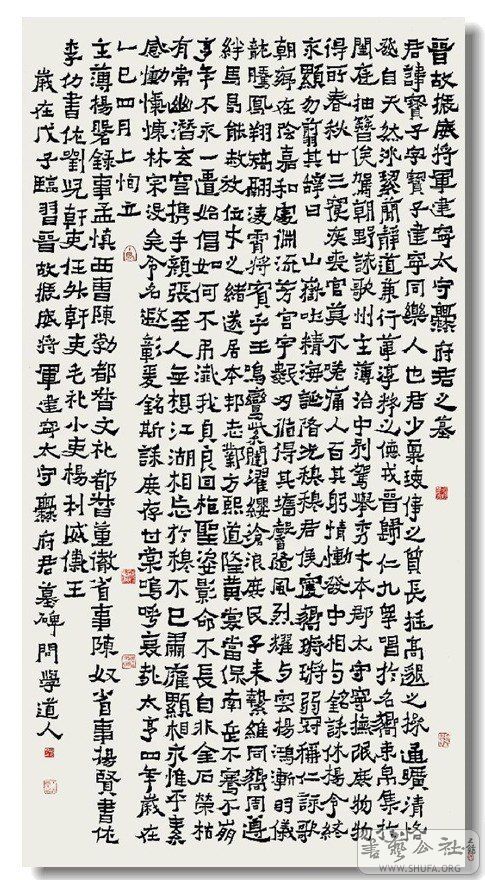 晉故振威將軍建寧太守爨府君之墓
君諱寶子字寶子建寧同樂人也君少稟瓌偉之質長挺高邈之操通曠清恪
發自天然冰絜簡靜道兼行葦淳粹之德戎晉歸仁九皋唱於名嚮束帛集於
閨庭抽簪俟駕朝野詠歌州主薄治中別駕舉秀才本郡太守寧撫氓庶物物
得所春秋廿三寢疾喪官莫不嗟痛人百其躬情慟發中相与銘誄休揚令終
永顯勿翦其辭曰 山嶽吐精海誕陼光穆穆君侯震嚮鏘鏘弱冠稱仁詠歌
朝鄉在陰嘉和處淵流芳宮宇數仞循得其墻馨隨風烈耀与雲揚鴻漸羽儀
龍騰鳳翔矯翮凌霄將賓乎王鳴鸞紫闥濯纓滄浪庶民子來縶維同嚮周遵
絆馬曷能赦放位才之緒遂居本邦志鄴方熙道隆黃裳當保南岳不騫不崩
享年不永一匱始倡如何不弔殲我貞良回抱聖姿影命不長自非金石榮枯
有常幽潛玄穹攜手顏張至人無想江湖相忘於穆不已肅雍顯相永惟平素
感慟慷慨林宗沒矣令名遐彰爰銘斯誄庶存甘棠嗚呼哀哉太亨四年歲在
乙巳四月上恂立
主薄楊磐錄事孟慎西曹陳勃都督文礼都督董徹省事陳奴省事楊賢書佐
李仂書佐劉兒幹吏任升幹吏毛礼小吏楊利威儀王
歲在戊子臨習晉故振威將軍建寧太守爨府君墓碑問學道人
书艺公社
WWW.SHUFA.ORG